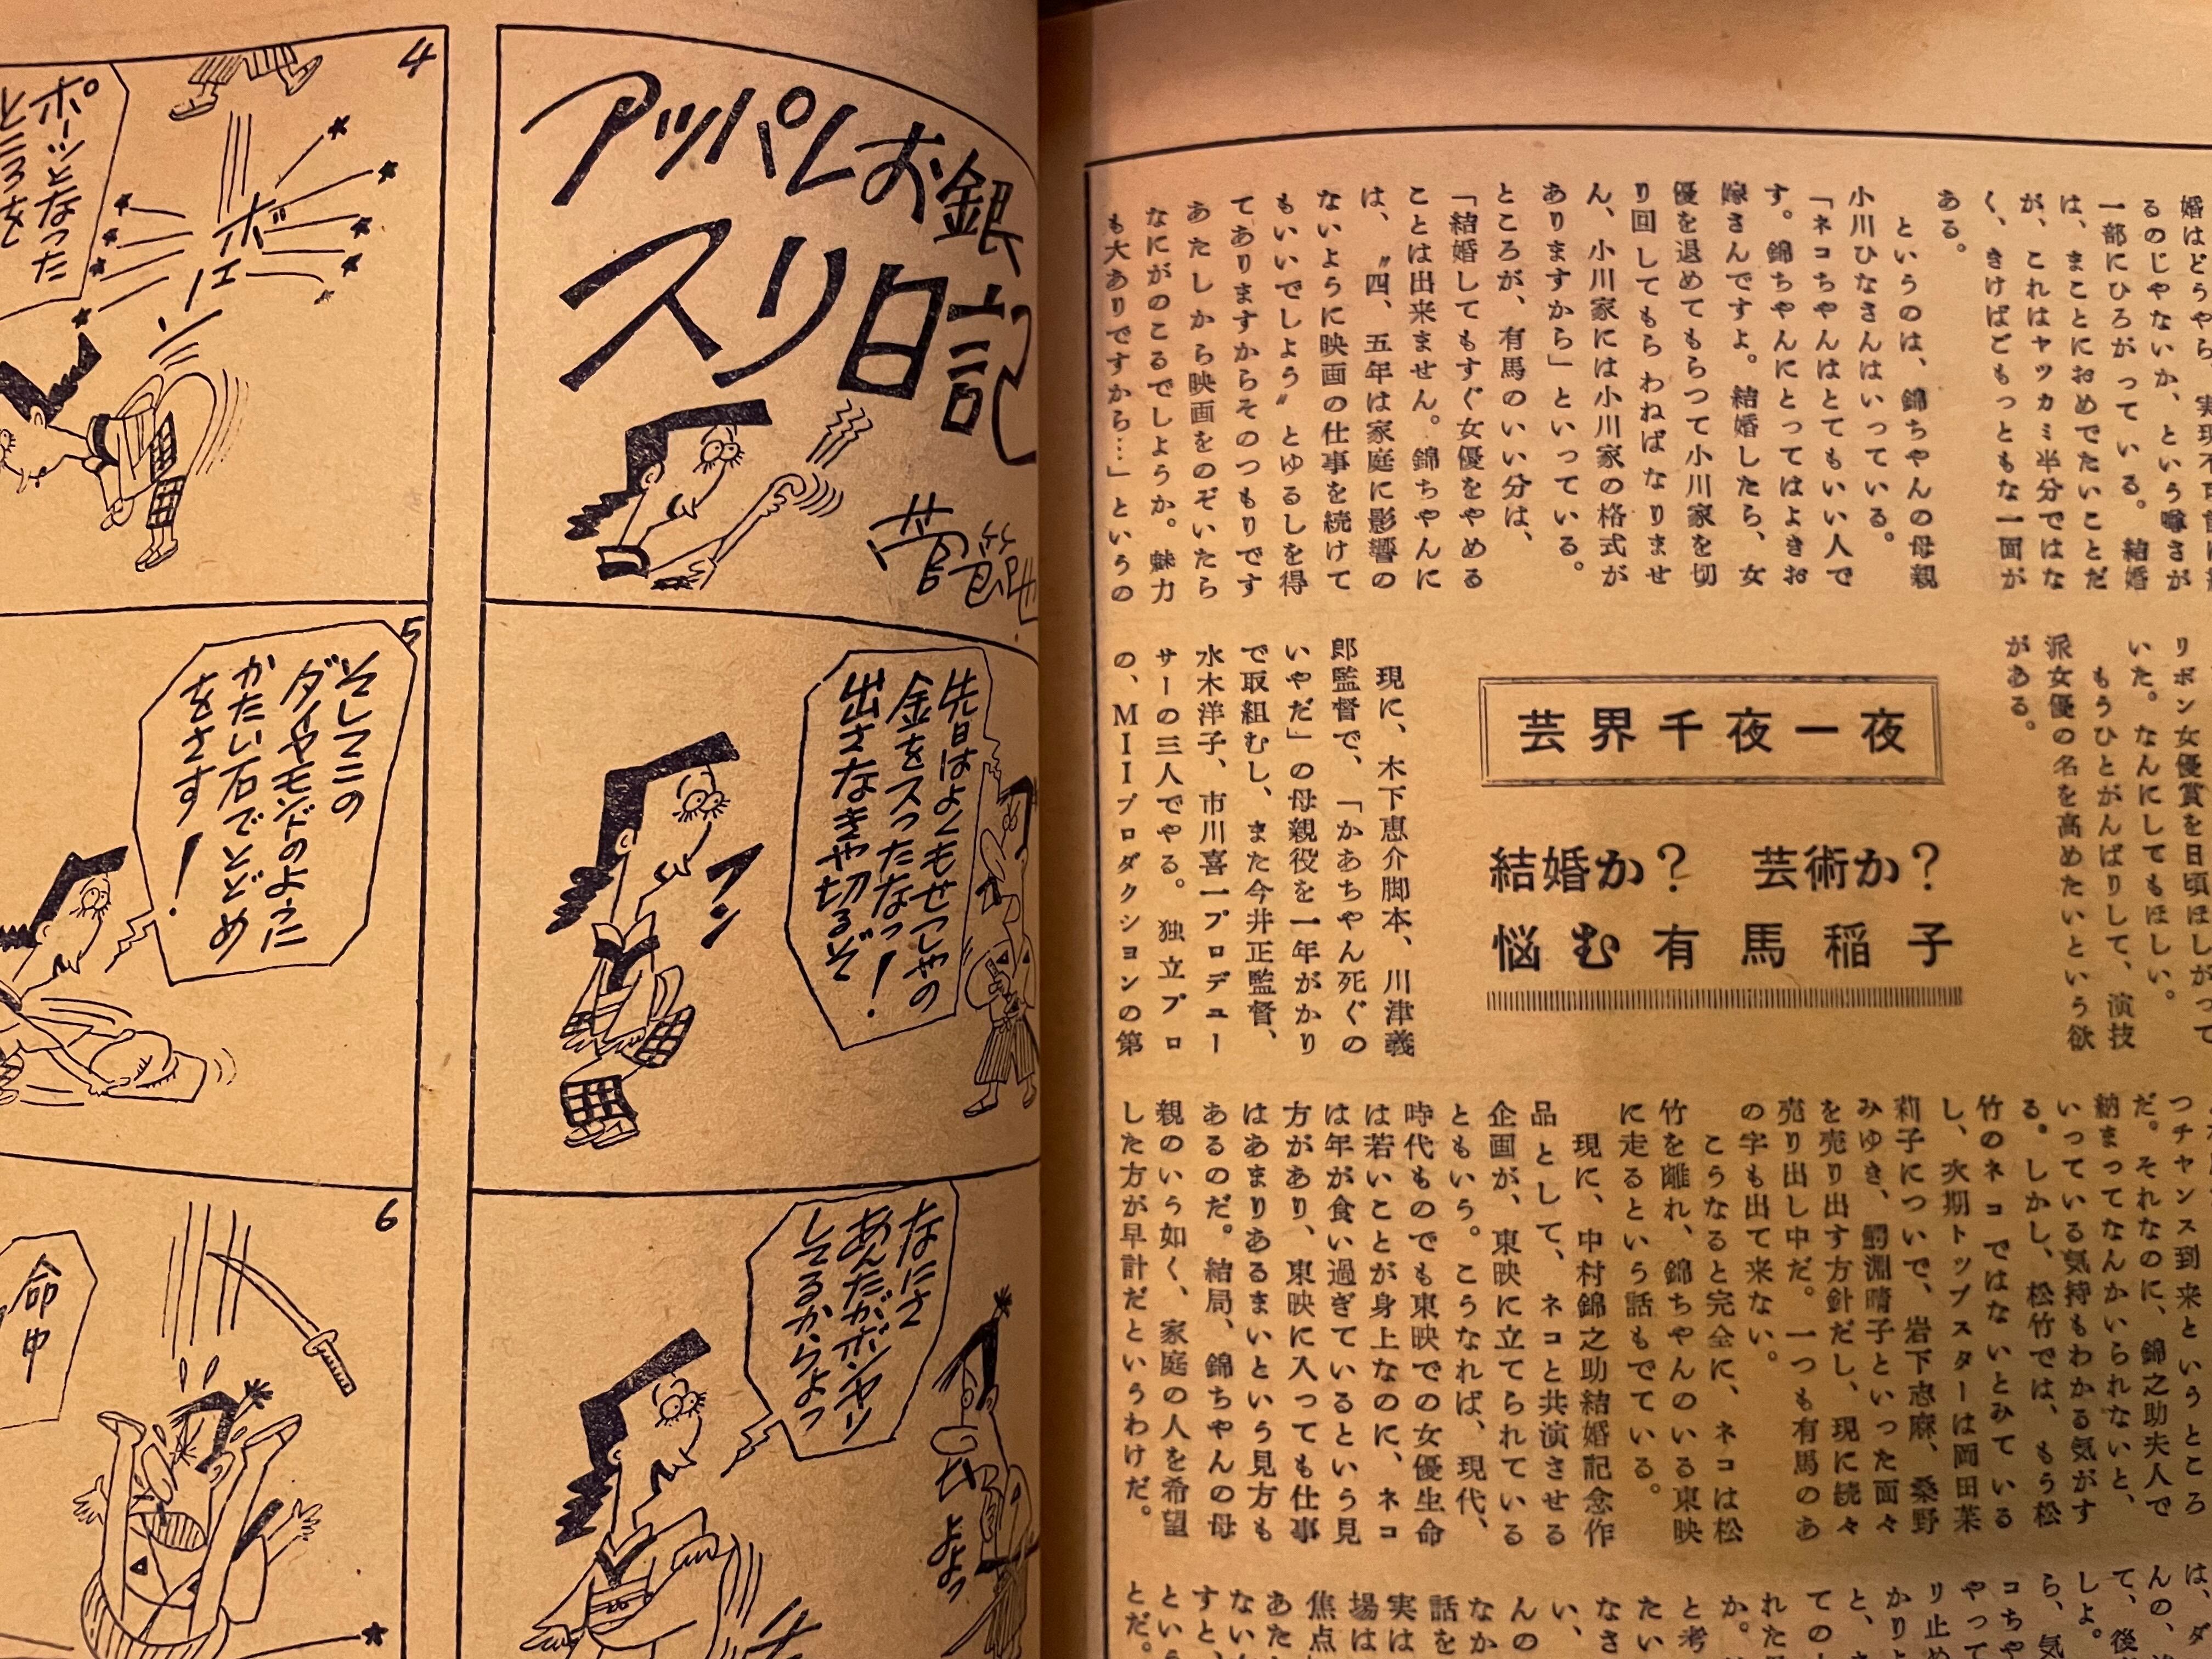 婚はどうやら、実現不可
るのじやないか、という噂さが
一部にひろがつている。結婚
は、まことにおめでたいことだ
が、これはヤツカミ半分ではな
く、きけばごもつともな一面が
ある。
というのは、錦ちやんの母親
小川ひなさんはいつている。
「ネコちやんはとてもいい人で
す。錦ちやんにとつてはよきお
嫁さんですよ。結婚したら、女
優を退めてもらつて小川家を切
り回してもらわねばなりませ
ん、小川家には小川家の格式が
ありますから」といつている。
ところが、有馬のいい分は、
「結婚してもすぐ女優をやめる
ことは出来ません。錦ちやんに
は、〝四、五年は家庭に影響の
ないように映画の仕事を続けて
もいいでしよう〟とゆるしを得
てありますからそのつもりです
あたしから映画をのぞいたら
なにがのこるでしようか。魅力
も大ありですから…」というの
リボン女優賞を日頃ほしがつて
いた。なんにしてもほしい。
もうひとがんばりして、演技
派女優の名を高めたいという欲
がある。
芸界千夜一夜
結婚か？　芸術か？
悩む有馬稲子
現に、木下恵介脚本、川津義
郎監督で、「かあちやん死ぐの
いやだ」の母親役を一年がかり
で取組むし、また今井正監督、
水木洋子、市川喜一プロデュー
サーの三人でやる。独立プロ
の、ＭＩＩプロダクションの第
つチャンス到来というところ
だ。それなのに、錦之助夫人で
納まつてなんかいられないと、
いつている気持もわかる気がす
る。しかし、松竹では、もう松
竹のネコではないとみている
し、次期トップスターは岡田茉
莉子について、岩下志麻、桑野
みゆき、鰐淵晴子といつた面々
を売り出す方針だし、現に続々
売り出し中だ。一つも有馬のあ
の字も出て来ない。
こうなると完全に、ネコは松
竹を離れ、錦ちやんのいる東映
に走るという話もでている。
現に、中村錦之助結婚記念作
品として、ネコと共演させる
企画が、東映に立てられている
ともいう。こうなれば、現代、
時代ものでも東映での女優生命
は若いことが身上なのに、ネコ
は年が食い過ぎているという見
方があり、東映に入つても仕事
はあまりあるまいという見方も
あるのだ。結局、錦ちやんの母
親のいう如く、家庭の人を希望
した方が早計だというわけだ。
アッパレお銀
スリ日記
先日はよくもせっしゃの
金をスったなっ！
出さなきゃ切るぞ
フン
なにさ
あんたがボンヤリ
してるからよっ
よよっ
4
ボイン
ポーッとなった
ところを
5
そしてこの
ダイヤモンドのように
かたい石でとどめ
をさす！
6
命中